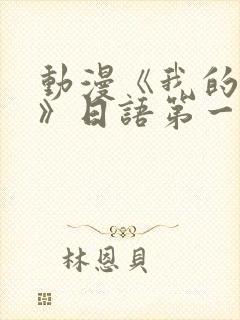 動漫《我的
》日語第一
林恩貝